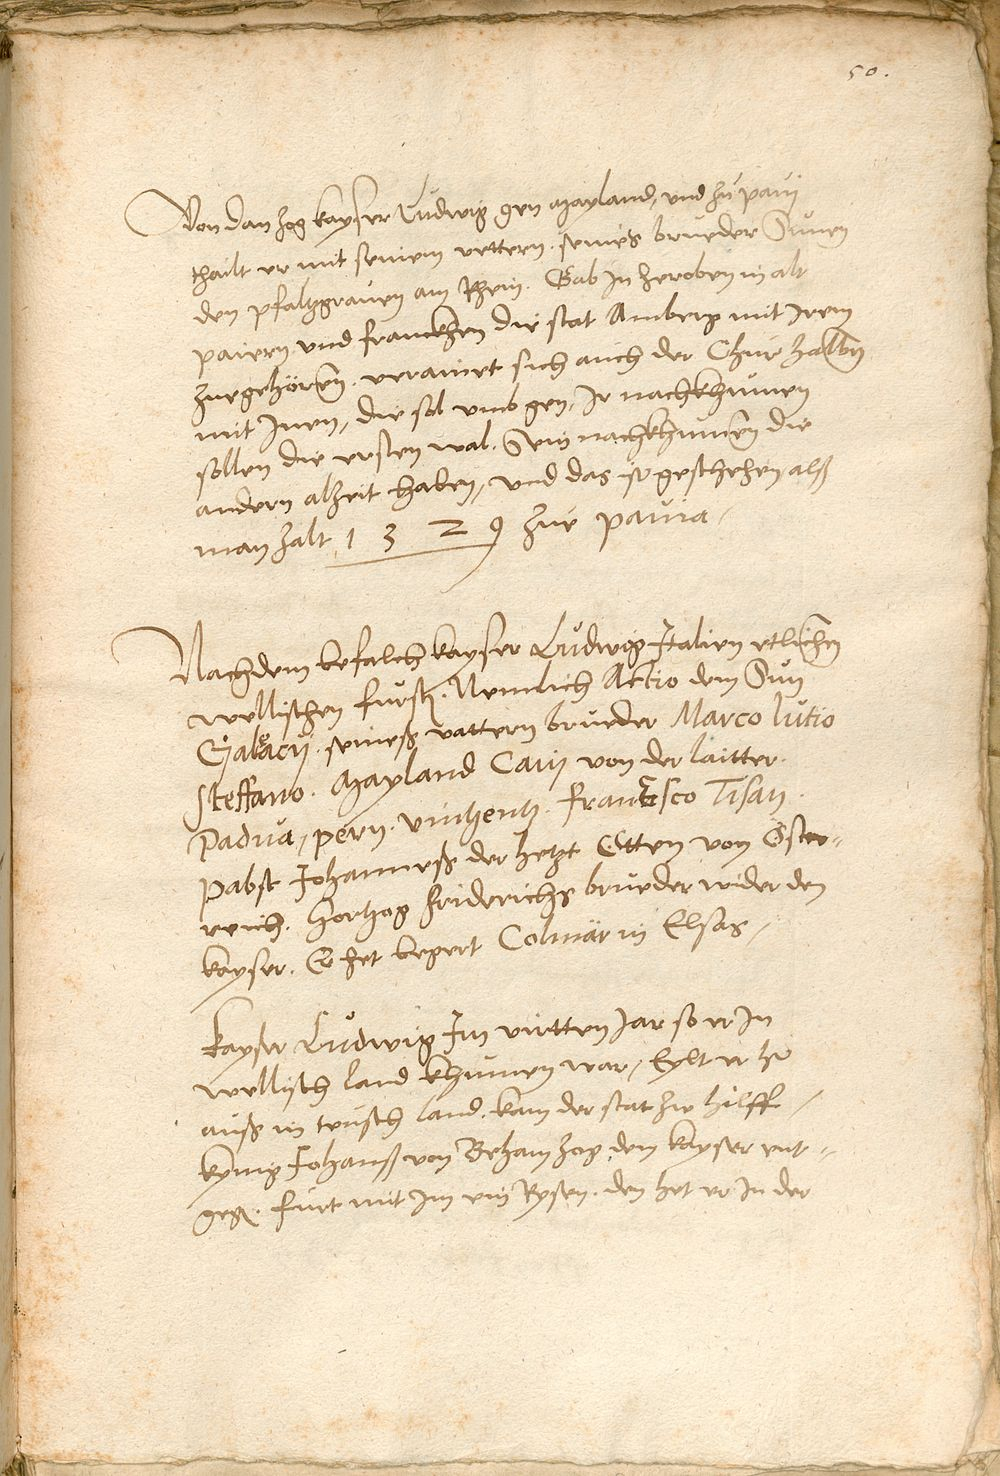 50.
Von dan zog kayser Ludwig gen Mayland, und zu pavij
thailt er mit seinem vettern. seines brueder Sunen
den pfaltzgraven am Rhein. Gab in heroben in alt
paiern und franckhen die stat Amberg mit Irem
zuegehören. verainet sich auch der Chur halben
mit Inen, die sol umb gen, Ir nachkhumen
sollen die ersten wal. Sein nachkhumen die
andern alzeit haben, und das ist geschehen alß
man zalt 1329 zue pavia,
Nachdem befalch kayser Ludwig Italien etlichen
wellischen fursten. Nemlich Actio dem Sun
Galäcij. seineß vattern brueder Marco lutio
Steffano. Mayland Canij von der laitter.
Padua, pern. vinhentz. Francisco Tisan.
Pabst Johanneß der hetzt Otten von Öster-
reich. Hertzog Friderichs brueder wider den
kayser. Er het belegert Colmär in Elsas,
Kayser Ludwig Im virtten Jar so er In
wellisch land khumen war, Eylt er he
auß in teusch land. kam der stat zu hilff,
kynig Johanß von Beham zog dem kayser ent-
gegen. fuert mit Im ein Rysen. den het er In der